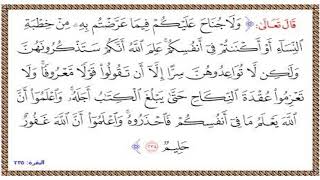 قَالَ تَعَالَىٰ: ﴿ وَلَا جُنَاحَ عَلَيْكُمْ فِيمَا عَرَّضْتُم بِهِۦ مِنْ خِطْبَةِ
ٱلنِّسَآءِ أَوْ أَكْنَنتُمْ فِىٓ أَنفُسِكُمْ ۚ عَلِمَ ٱللَّهُ أَنَّكُمْ سَتَذْكُرُونَهُنَّ
وَلَٰكِن لَّا تُوَاعِدُوهُنَّ سِرًّا إِلَّآ أَن تَقُولُوا۟ قَوْلًا مَّعْرُوفًا ۚ وَلَا
تَعْزِمُوا۟ عُقْدَةَ ٱلنِّكَاحِ حَتَّىٰ يَبْلُغَ ٱلْكِتَٰبُ أَجَلَهُۥ ۚ وَٱعْلَمُوٓا۟ أَنَّ
ٱللَّهَ يَعْلَمُ مَا فِىٓ أَنفُسِكُمْ فَٱحْذَرُوهُ ۚ وَٱعْلَمُوٓا۟ أَنَّ ٱللَّهَ غَفُورٌ
حَلِيمٌ ﴿٢٣٥﴾ ﴾
البقرة: ٢٣٥